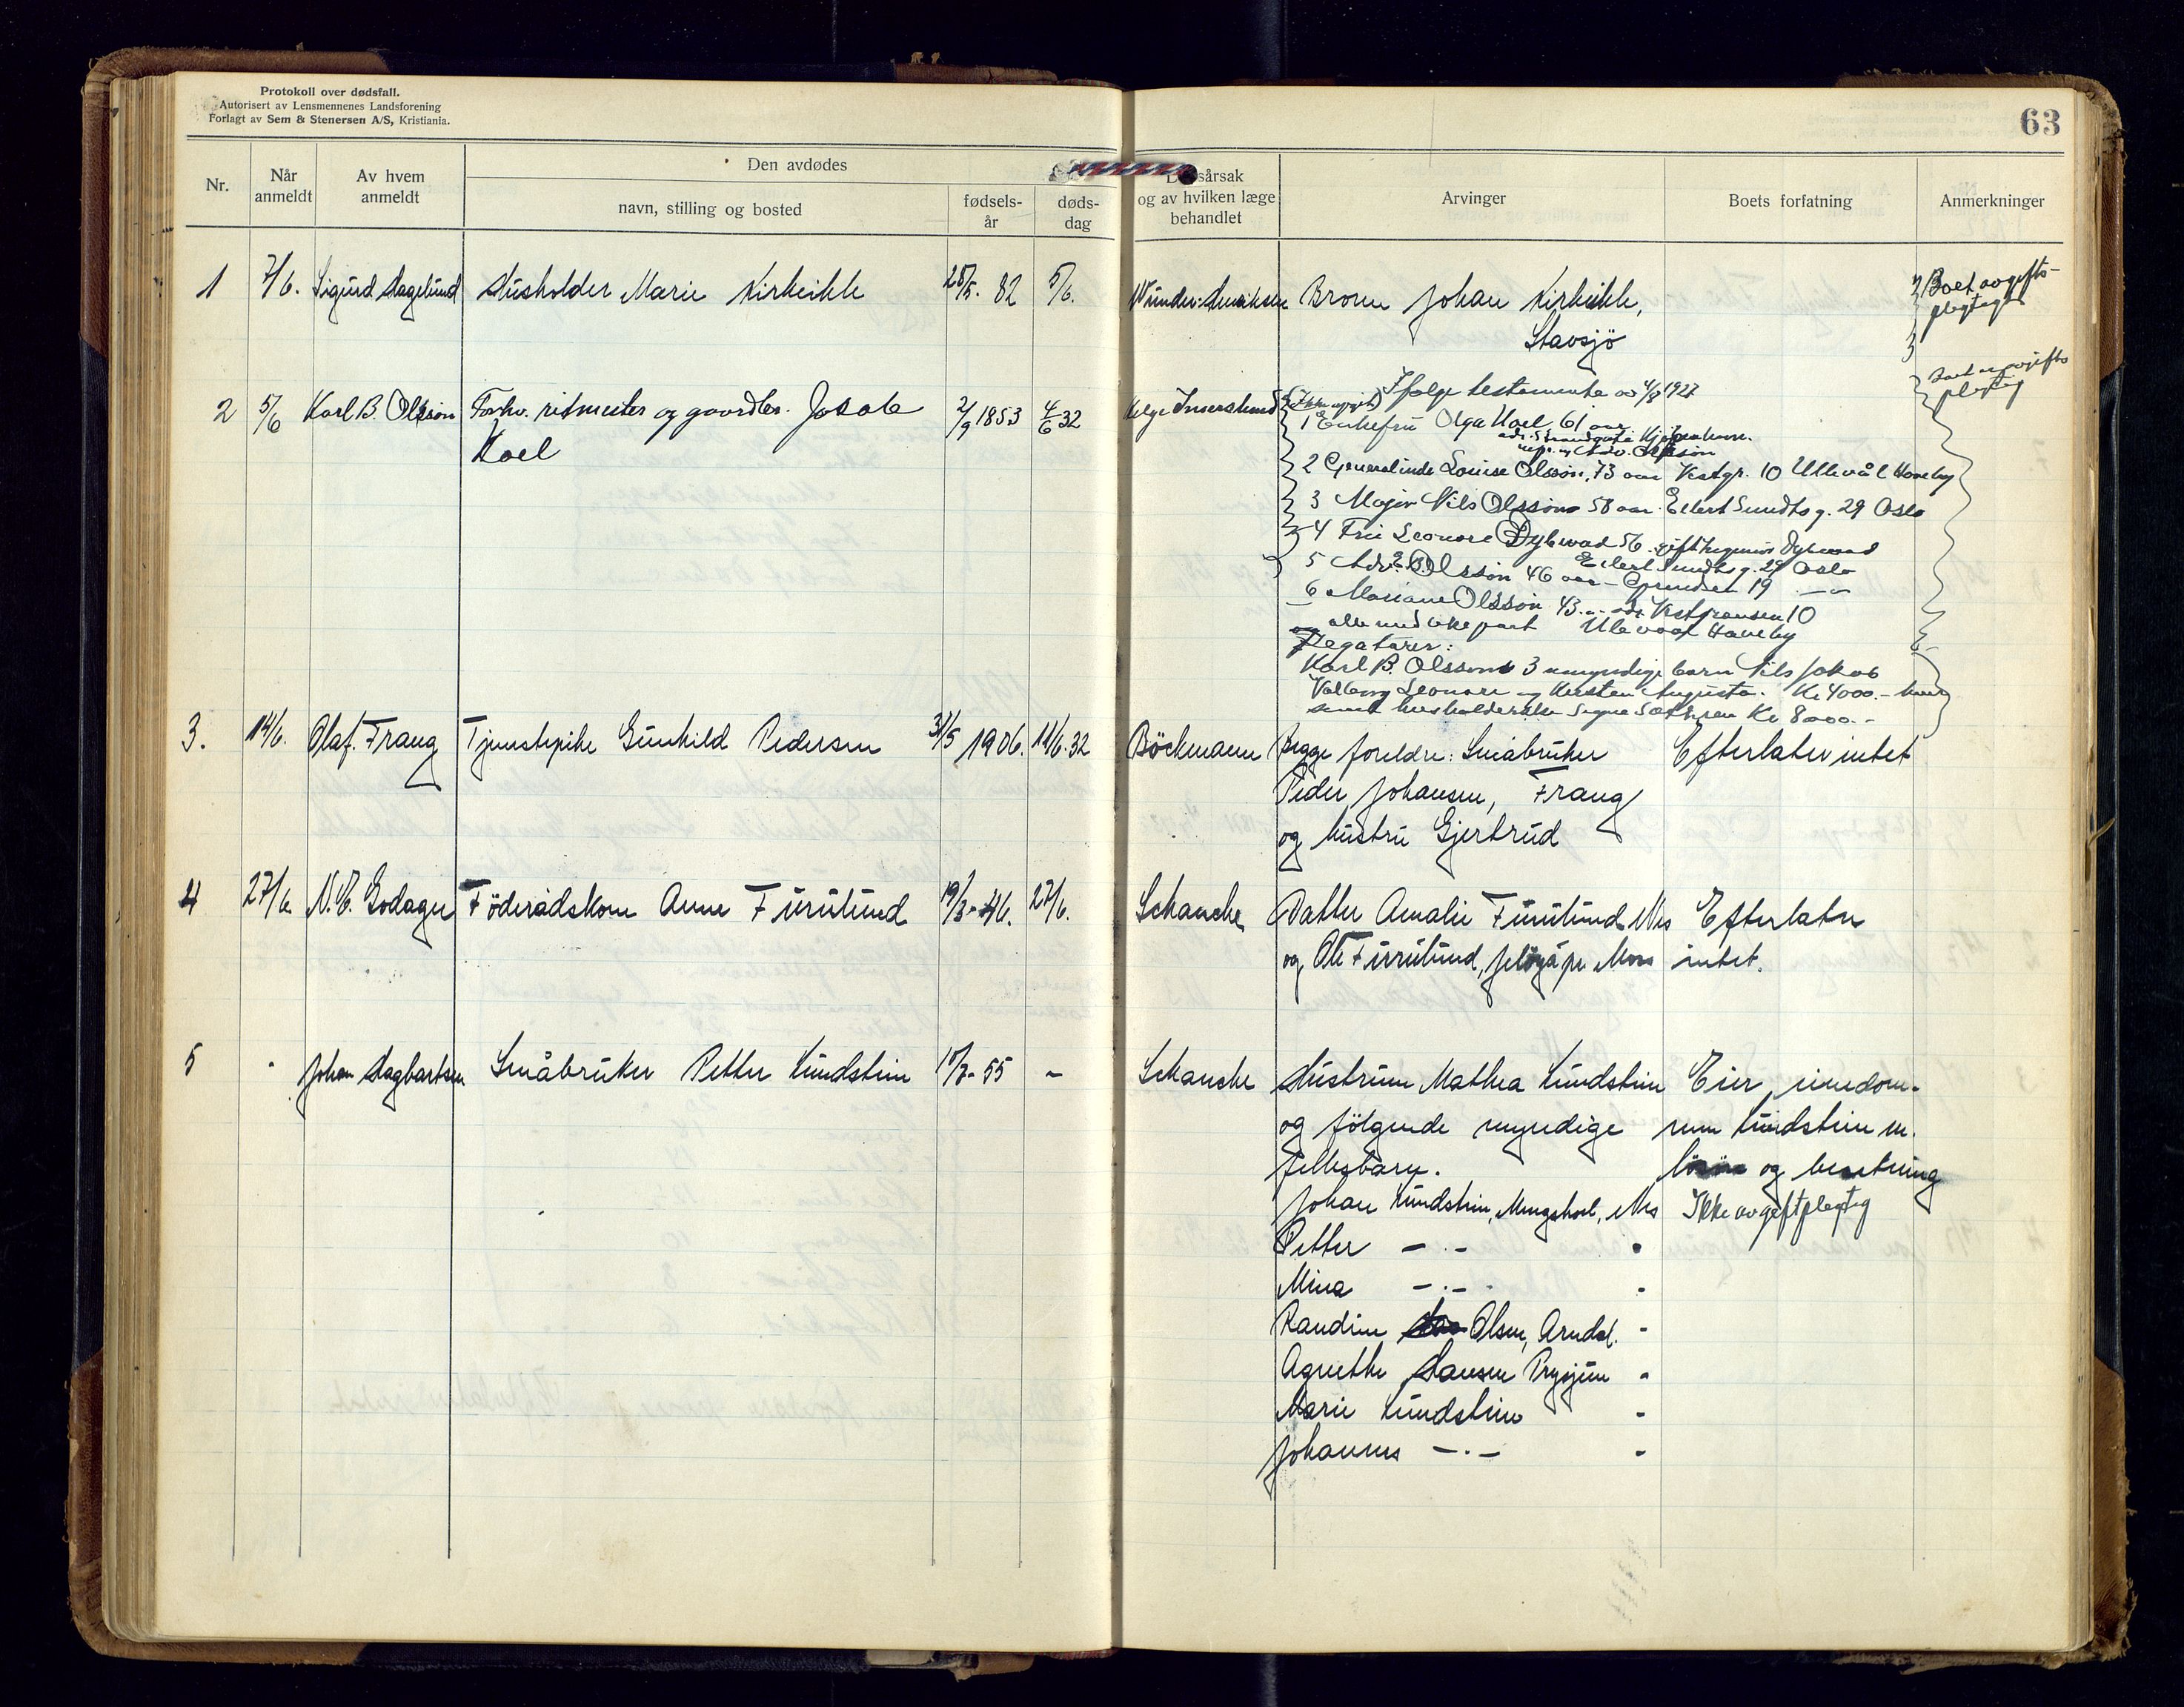 Protokoll over dødsfall.
Autorisert av Lensmennenes Landsforening
Forlagt av Sem & Stenersen A/S, Kristiania.
63
Nr.
Når anmeldt
Av hvem anmeldt
Den avdødes
navn, stilling og bosted
fødsels-år
døds-dag
og av hvilken læge behandlet
Arvinger
Boets forfatning
Anmerkninger
1 7/6. Sigurd Hagelund Husholder Marie Kirkeikle 28/5. 82 5/6. Wunder-Henriksen Broren Johan Kirkeikle, Boet avgifts-
Stavsjö plegtig
2 5/6 Karl B. Olssøn Forhv. ritmester og gaardbr. Jakob 2/9 1853 4/6 32 Helge Ingerslund Ifølge testamente av 4/8 1927 Boet avgifts
Koel plegtig
(Ikke opgit)
1 Enkefru Olga Koel 61 aar
adr. Strandgate Kjøbenhavn.
repr. av Adv. Olssøn
2 Generalinde Louise Olssøn, 73 aar Vestgr. 10 Ullevål Haveby
3 Major Nils Olssøn 58 aar. Eilert Sundts g. 29 Oslo
4 Fru Leonore Dybwad 56. gift Dybwad
Eilert Sundts g. 29 Oslo
5 Adv. E. B. Olssøn 46 aar - 19 -"-
6 Mariane Olssøn 43 - adr. Vestgrensen 10
alle med like part Ulevaal Haveby
Legatarer:
Karl B. Olssøns 3 umyndige barn Nils Jakob
Valborg Leonore og Kirsten Augusta. Kr 4000.- hver
samt husholderske Signe Sæthren Kr 8000.-
3. 14/6. Olaf. Frang Tjenstepike Gunhild Pedersen 31/5 1906. 14/6.32 Böckmann Begge foreldre: Småbruker Efterlater intet
Peder Johansen, Frang
og hustru Gjertrud
4 27/6. N. E. Godager Föderådskone Anne Furulund 19/3-46. 27/6. Schanche Datter Amalie Furulund Nes Efterlater
og Ole Furulund, Jelöya pr Moss intet.
5 - Johan Dagbartsen Småbruker Petter Lundstein 15/3-55 - Schanche Hustruen Mathea Lundstein Eier eiendom-
og fölgende myndige men Lundstein m.
fellesbarn. lösöre og besetning
Johan Lundstein, Mengshol, Nes Ikke avgiftplegtig
Petter - . - "
Mina - . - "
Randine Olsen, Arndal. "
Agnethe Hansen Prysjum "
Marie Lundstein "
Johannes - . - "